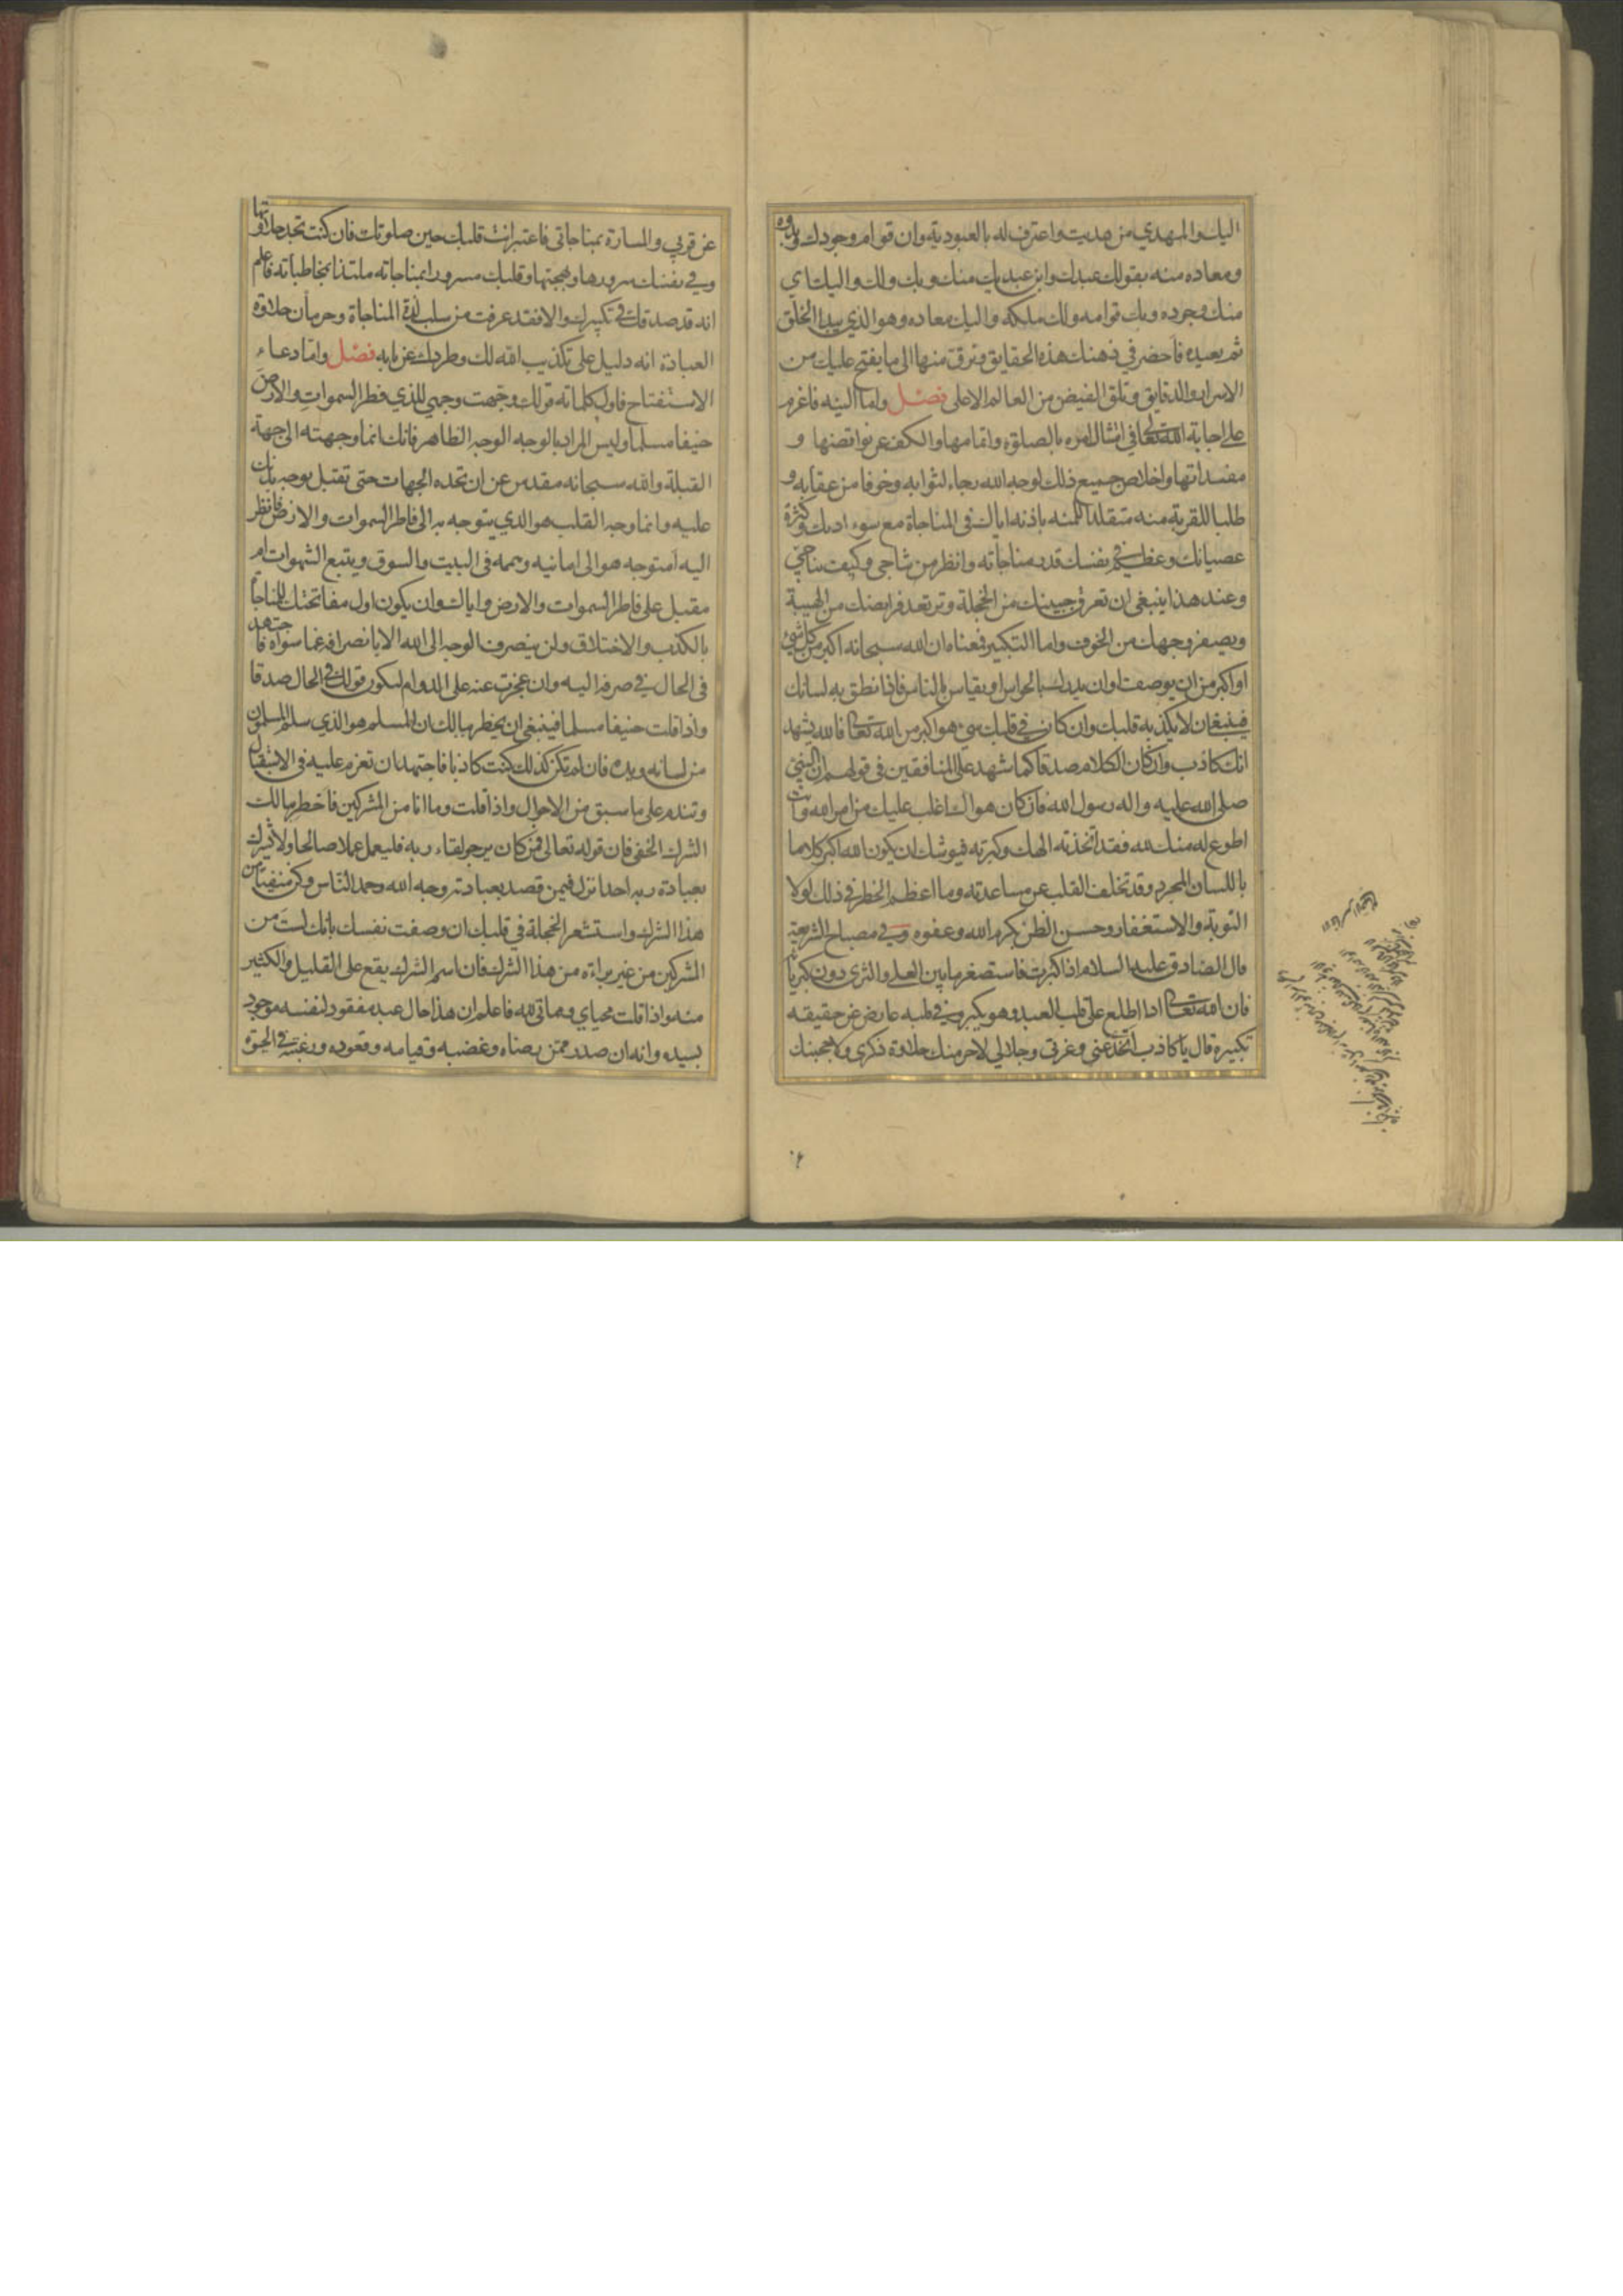 اليك والمهدي من هديت واعترف له بالعبودية وان قوام وجودك وبدوه
ومعاده منه بقولك عبدك وابن عبديك منك وبك ولك واليك اي
منك وجوده وبك قوامه ولك ملكه واليك معاده وهو الذي يبدا الخلق
ثم يعيده فاحضر في ذهنك هذه الحقايق وترق منها الى ما يفتح عليك من
الاسرار والدقايق وتلق الفيض من العالم الاعلى فصل واما النيه فاعزم
على اجابة الله تعالى في امتثال امره بالصلوة واتمامها والكف عن نواقضها و
مفسداتها واخلاص جميع ذلك لوجه الله رجاء لثوابه وخوفا من عقابه و
طلبا للقربة منه متقلدا للمنه باذنه اياك في المناجاة مع سوء ادبك وكثرة
عصيانك وعظم في نفسك قدر مناجاته وانظر من تناجي وكيف تناجي
وعند هذا ينبغي ان تعرق جبينك من الخجلة وترتعد فرايصك من الهيبة
ويصفر وجهك من الخوف واما التكبير فمعناه ان الله سبحانه اكبر من كل شئ
او اكبر من ان يوصف او ان يدرك بالحواس او يقاس بالناس فاذا نطق به لسانك
فينبغي ان لا يكذبه قلبك وان كان في قلبك شئ هو اكبر من الله تعالى فالله يشهد
انك كاذب وان كان الكلام صدقا كما شهد على المنافقين في قولهم ان النبي
صلى الله عليه واله رسول الله فان كان هواك اغلب عليك من امر الله وانت
اطوع له منك لله فقد اتخذته الهك وكبرته فيوشك ان يكون الله اكبر كلاما
باللسان المجرد وقد تخلف القلب عن مساعدته وما اعظم الخطر في ذلك لولا
التوبة والاستغفار وحسن الظن بكرم الله وعفوه وفي مصباح الشريعة
قال الصادق عليه السلام اذا كبرت فاستصغر ما بين العلى والثرى دون كبريائه
فان الله تعالى اذا اطلع على قلب العبد وهو يكبر وفي قلبه عارض عن حقيقه
تكبيره قال يا كاذب اتخدعني وعزتي وجلالي لاحرمنك حلاوة ذكري ولاحجبنك
عن قربي والمسارة بمناجاتي فاعتبر انت قلبك حين صلوتك فان كنت تجد حلاوتها
وفي نفسك سرورها وبهجتها وقلبك مسرورا بمناجاته ملتذا بمخاطباته فاعلم
انه قد صدقك في تكبيرك والا فقد عرفت من سلب لذة المناجاة وحرمان حلاوة
العبادة انه دليل على تكذيب الله لك وطردك عن بابه فصل واما دعاء
الاستفتاح فاول كلماته قولك وجهت وجهي للذي فطر السموات والارض
حنيفا مسلما وليس المراد بالوجه الوجه الظاهر فانك انما وجهته الى جهة
القبلة والله سبحانه مقدس عن ان تحده الجهات حتى تقبل بوجه بدنك
عليه وانما وجه القلب هو الذي يتوجه به الى فاطر السموات والارض فانظر
اليه امتوجه هو الى امانيه وهمه في البيت والسوق ويتبع الشهوات ام
مقبل على فاطر السموات والارض واياك وان يكون اول مفاتحتك للمناجاة
بالكذب والاختلاق ولن ينصرف الوجه الى الله الا بانصرافه عما سواه فاجتهد
في الحال في صرفه اليه وان عجزت عنه على الدوام ليكون قولك في الحال صدقا
واذا قلت حنيفا مسلما فينبغي ان يخطر ببالك ان المسلم هو الذي سلم المسلمون
من لسانه ويده فان لم تكن كذلك كنت كاذبا فاجتهد ان تعزم عليه في الاستقبال
وتندم على ما سبق من الاحوال واذا قلت وما انا من المشركين فاخطر ببالك
الشرك الخفي فان قوله تعالى فمن كان يرجو لقاء ربه فليعمل عملا صالحا ولا يشرك
بعبادة ربه احدا نزل فيمن قصد بعبادته وجه الله وحمد الناس وكن منفيا من
هذا الشرك واستشعر الخجلة في قلبك ان وصفت نفسك بانك لست من
المشركين من غير براءه من هذا الشرك فان اسم الشرك يقع على القليل والكثير
منه واذا قلت محياي ومماتي لله فاعلم ان هذا حال عبد مفقود لنفسه موجود
لسيده وانه ان صدر ممن رضاه وغضبه وقيامه وقعوده ورغبته في الحيوة